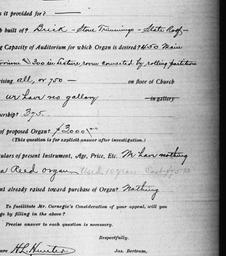 is it provided for?
h built of? Brick - Stone Trimmings - Slate Roof -
Capacity of Auditorium for which Organ is desired? 450 Main
& 300 in Lecture room connected by rolling partition
ising all, or 750 — on floor of Church
we have no gallery — in gallery
ership? 375.
of proposed Organ? $2000
(This question is for explicit answer after investigation.)
culars of present Instrument, Age, Price, Etc. We have nothing
a Reed organ Used 10 years Cost
unt already raised toward purchase of Organ? Nothing
To facilitate Mr. Carnegie's Consideration of your appeal, will you
ge by filling in the above?
Precise answer to each question is necessary.
Respectfully,
H.L. Hunter Jas. Bertram,